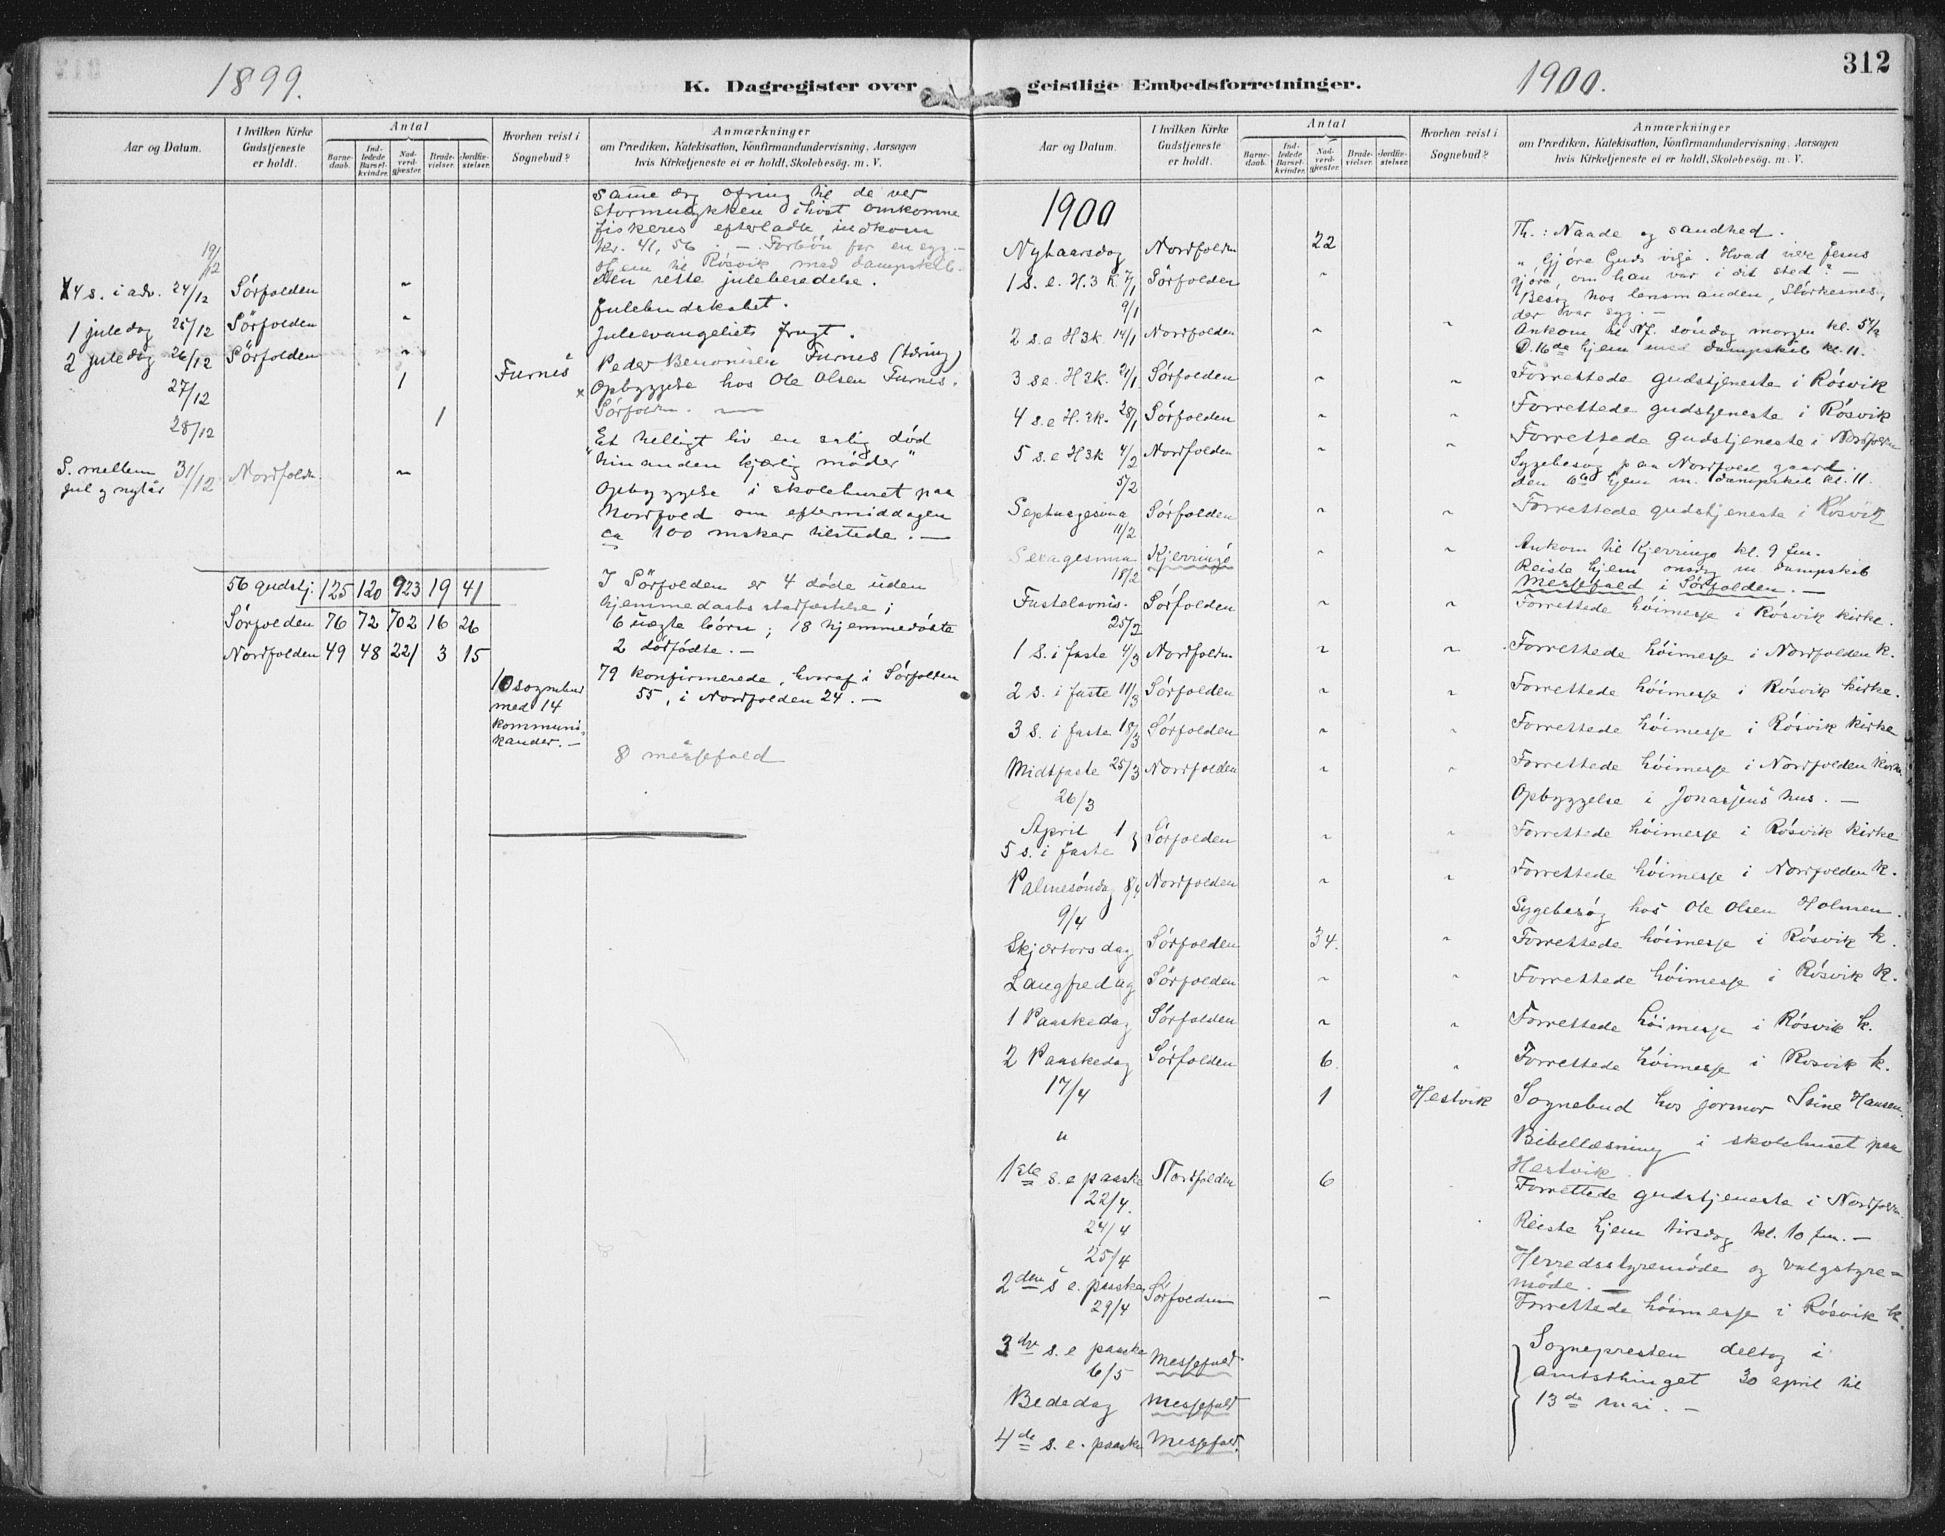 312
1899.
K. Dagregister over
Aar og Datum.
I hvilken Kirke Gudstjeneste er holdt.
Antal
Barnedaab.
Indledede Barselkvinder.
Nadverdgjæster.
Brudevielser.
Jordfæstelser.
Hvorhen reist i Sognebud?
Anmærkninger
om Prædiken, Katekisation, Konfirmandundervisning, Aarsagen
hvis Kirketjeneste ei er holdt, Skolebesøg. m. V.
Samme dag ofring til de ved
stormulykken i høst omkomne
fiskeres efterladte, indkom
19/12 kr. 41,56. — Forbøn for en syg. —
Hjem til Røsvik med dampskib.
4 s. i adv. 24/12 Sørfolden " Den rette juleberedelse.
Julebudskabet.
1 juledag 25/12 Sørfolden " Juleevangeliets frugt.
2 juledag 26/12 Sørfolden " Peder Benonisen Furnes (tæring)
27/12 1 Furnes Opbyggelse hos Ole Olsen Furnes.
Sørfolden. —
28/12 1
Et helligt liv en salig død
S. mellem jul og nytår 31/12 Nordfolden " "hinanden kjærlig møder"
Opbyggelse i skolehuset paa
Nordfold om eftermiddagen
ca 100 msker tilstede. —
56 gudstj. 125 120 923 19 41 I Sørfolden er 4 døde uden
hjemmedaabs stadfæstelse;
Sørfolden 76 72 702 16 26 6 uægte børn; 18 hjemmedøbte
Nordfolden 49 48 221 3 15 2 dødfødte. —
10 sognebud
med 14
kommuni-
kander. —
79 konfirmerede, hvoraf i Sørfolden
55, i Nordfolden 24. —
8 messefald
geistlige Embedsforretninger.
1900.
Aar og Datum.
I hvilken Kirke Gudstjeneste er holdt.
Antal
Barnedaab.
Indledede Barselkvinder.
Nadverdgjæster.
Brudevielser.
Jordfæstelser.
Hvorhen reist i Sognebud?
Anmærkninger
om Prædiken, Katekisation, Konfirmandundervisning, Aarsagen
hvis Kirketjeneste ei er holdt, Skolebesøg. m. V.
1900
Nyhaarsdag Nordfolden 22 Th.: Naade og sandhed.
1 s. e. H. 3 k. 7/1 Sørfolden " "Gjøre Guds vilje. Hvad vilde Jesus
gjøre, om han var i dit sted?" —
9/1 Besøg hos lensmanden, Størkesnes,
der var syg. —
2 s. e H3k 14/1 Nordfolden " " Ankom til Nf. søndag morgen kl. 5½
D. 16de hjem med dampskib kl. 11.
3 s e. H3k. 21/1 Sørfolden " " Forrettede gudstjeneste i Røsvik
4 s. e H. 3k. 28/1 Sørfolden " " Forrettede gudstjeneste i Røsvik
5 s. e H3k 4/2 Nordfolden " " Forrettede gudstjeneste i Nordfolden
5/2 Sygebesøg paa Nordfold gaard.
den 6te hjem m. dampskib kl. 11.
Septuagesima 11/2 Sørfolden " " Forrettede gudstjeneste i Røsvik
Sexagesima 18/2 Kjerringø " " Ankom til Kjerringø kl. 9 fm.
Reiste hjem onsdag m. dampskib
Messefald i Sørfolden. —
Fastelavns. 25/2 Sørfolden " " Forrettede höimesse i Røsvik kirke.
1 s. i faste 4/3 Nordfolden " " Forrettede höimesse i Nordfolden k.
2 s. i faste 11/3 Sørfolden " " Forrettede höimesse i Røsvik kirke.
3 s. i faste 18/3 Sørfolden " " Forrettede höimesse i Røsvik kirke
Midtfaste 25/3 Nordfolden " " Forrettede höimesse i Nordfolden kirke
26/3 Opbyggelse i Jonassens hus. —
April 1
5 s. i faste } Sørfolden " " Forrettede höimesse i Røsvik kirke
Palmesøndag 8/4 Nordfolden " " Forrettede höimesse i Nordfolden k.
9/4 Sygebesøg hos Ole Olsen Holmen.
Skjærtorsdag Sørfolden 34. " Forrettede höimesse i Røsvik k.
Langfredag Sørfolden " " Forrettede höimesse i Røsvik k.
1 Paaskedag Sørfolden " " Forrettede höimesse i Røsvik k.
2 Paaskedag Sørfolden 6. " Forrettede höimesse i Røsvik k.
17/4 1 Hestvik Sognebud hos jormor Hansen.
" Bibellæsning i skolehuset paa
Hestvik.
1ste s. e paaske 22/4. Nordfolden 6 Forrettede gudstjeneste i Nordfolden.
24/4 Reiste hjem tirsdag kl. 10 fm. —
25/4 Herredsstyremøde og valgstyre-
møde. —
2den s e. paaske 29/4 Sørfolden — Forrettede höimesse i Røsvik k.
3die s. e paaske 6/5 Messefald
Sognepresten deltog i
Amtsthinget 30 april til
13de mai. —
Bededag Messefald
4de s. e. paaske Messefald.